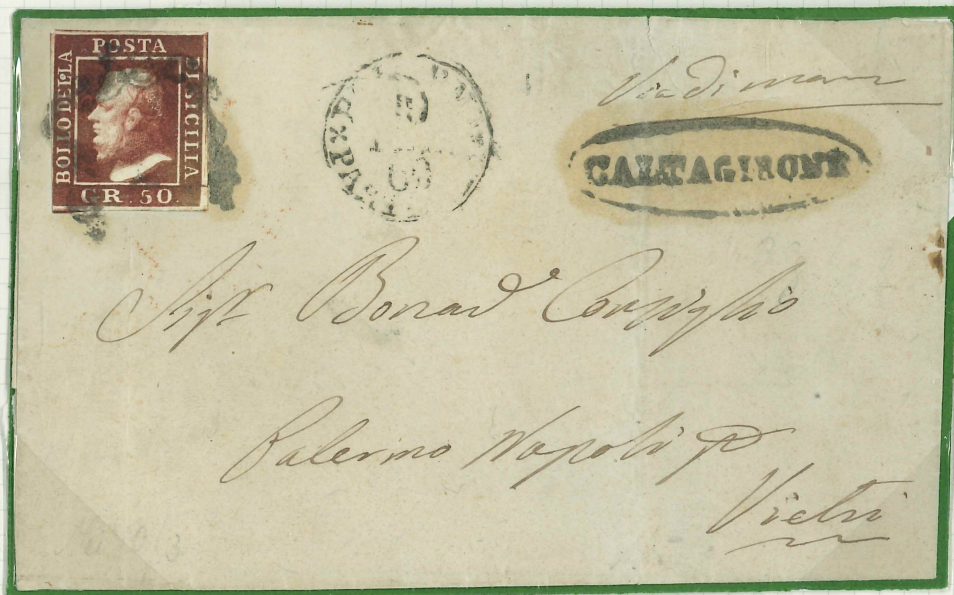 BOLLO DELLA
POSTA
DI SICILIA
GR. 50.
Via di mare
CALTAGIRONE
Sigr. Bonad Consiglio
Palermo Napoli p
Vietri